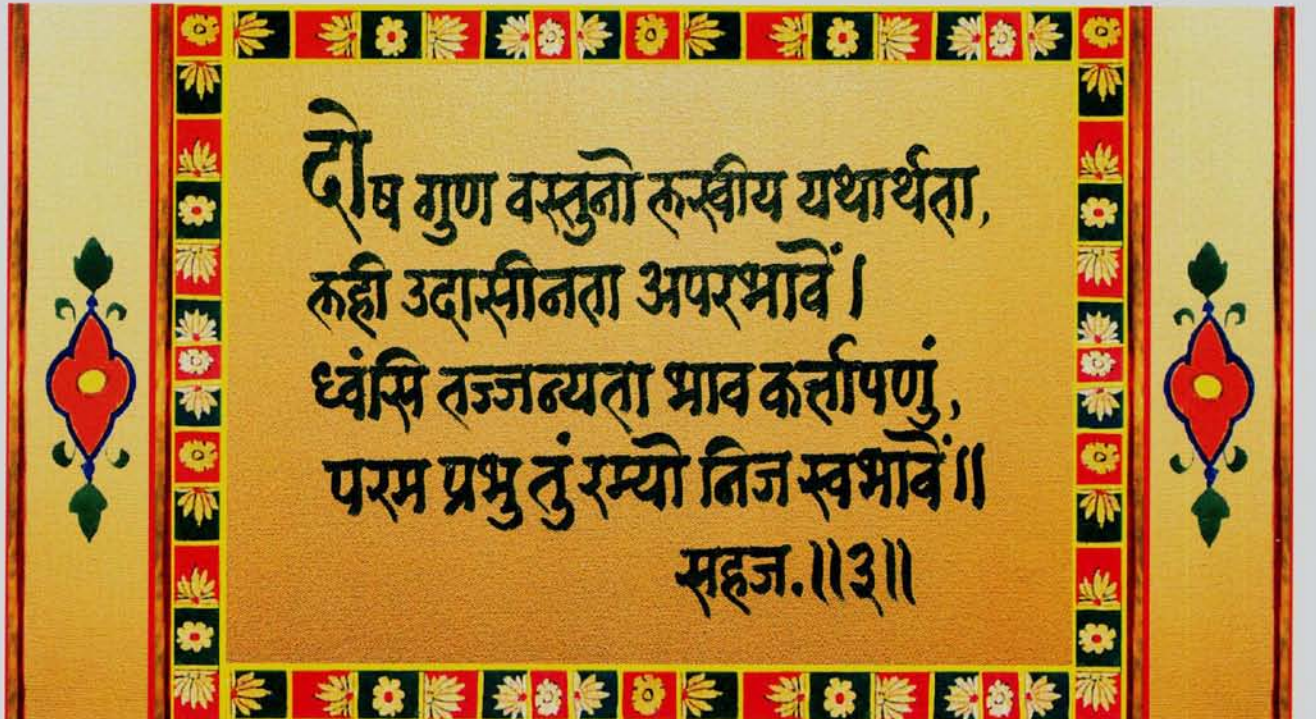 दोष गुण वस्तुनो लखीय यथार्थता,
लही उदासीनता अपरभावें।
ध्वंसि तज्जन्यता भाव कर्त्तापणुं,
परम प्रभु तुं रम्यो निज स्वभावें॥
सहज.॥३॥